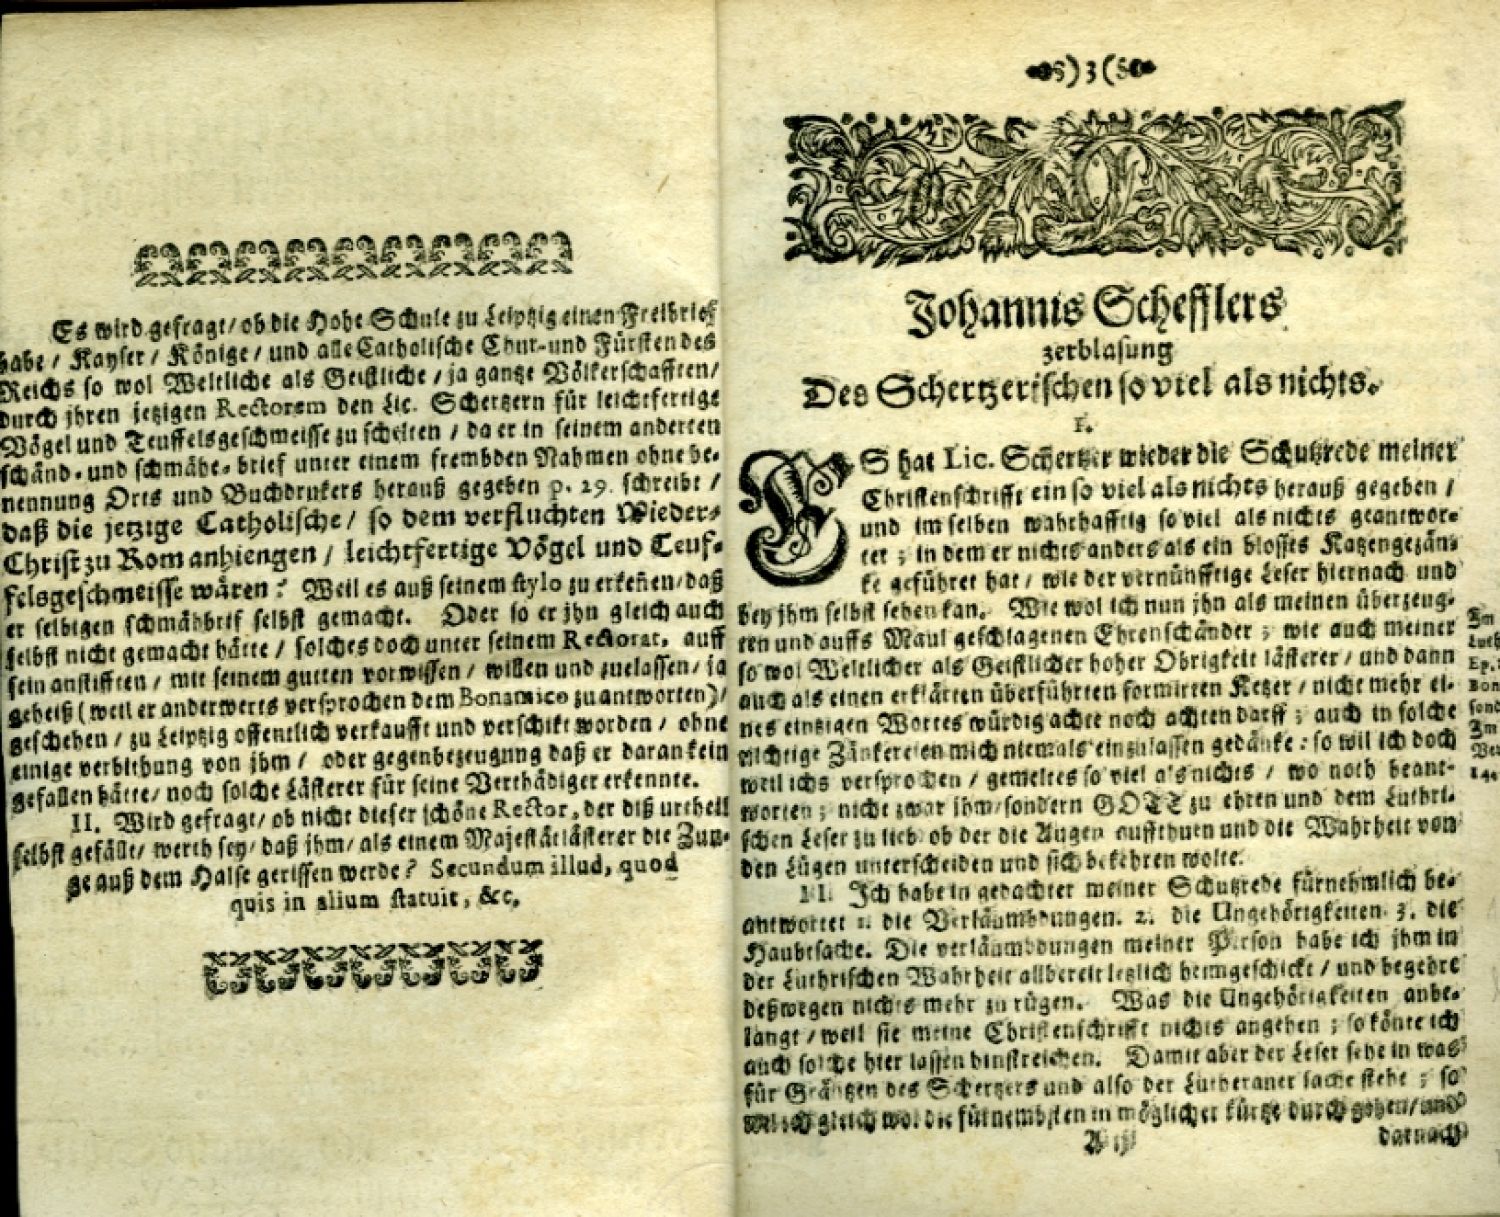 Es wird gefragt/ ob die Hohe Schule zu Leipzig einen Freibrief
habe / Kayser / Könige / und alle Catholische Chur-und Fürsten des
Reichs so wol Weltliche als Geistliche / ja gantze Völkerschafften/
durch jhren jetzigen Rectorem den Lic. Schertzern für leichtfertige
Vögel und Teuffelsgeschmeisse zu schelten / da er in seinem anderten
schänd- und schmähe-brief unter einem frembden Nahmen ohne be-
nennung Orts und Buchdrukers herauß gegeben p. 29. schreibt /
daß die jetzige Catholische / so dem verfluchten Wieder-
Christ zu Rom anhiengen / leichtfertige Vögel und Teuf-
felsgeschmeisse wären? Weil es auß seinem stylo zu erkeñen/ daß
er selbigen schmähbrif selbst gemacht. Oder so er jhn gleich auch
selbst nicht gemacht hätte / solches doch unter seinem Rectorat, auff
sein anstifften / mit seinem gutten vorwissen / willen und zuelassen / ja
geheiß (weil er anderwerts versprochen dem Bonamico zu antworten)/
geschehen / zu Leipzig offentlich verkaufft und verschikt worden / ohne
einige verbittung von jhm / oder gegenbezeugung daß er daran kein
gefallen hätte/ noch solche Lästerer für seine Verthädiger erkennte.
II. Wird gefragt/ ob nicht dieser schöne Rector, der diß urtheil
selbst gefällt/ werth sey/ daß jhm/ als einem Majestätlästerer die Zun-
ge auß dem Halse gerissen werde? Secundum illud, quod
quis in alium statuit, &c.
)3(
Johannis Schefflers
zerblasung
Des Schertzerischen so viel als nichts.
I.
ES hat Lic. Schertzer wieder die Schutzrede meiner
Christenschrifft ein so viel als nichts herauß gegeben /
und im selben wahrhafftig so viel als nichts geantwor-
tet ; in dem er nichts anders als ein blosses Katzengezän-
ke geführet hat / wie der vernünfftige Leser hiernach und
bey jhm selbst sehen kan. Wie wol ich nun jhn als meinen überzeug-
ten und auffs Maul geschlagenen Ehrenschänder ; wie auch meiner
so wol Weltlicher als Geistlicher hoher Obrigkeit lästerer / und dann
auch als einen erklärten überführten formirten Ketzer / nicht mehr ei-
nes eintzigen Wortes würdig achte noch achten darff ; auch in solche
nichtige Zänkereien mich niemals einzulassen gedänke : so wil ich doch
weil ichs versprochen / gemeltes so viel als nichts / wo noth beant-
worten ; nicht zwar jhm/ sondern GOTT zu ehren und dem Luthri-
schen Leser zu lieb ob der die Augen auffthuen und die Wahrheit von
den Lügen unterscheiden und sich bekehren wolte.
II. Ich habe in gedachter meiner Schutzrede fürnehmlich be-
antwortet 1. die Verläumbdungen. 2. die Ungehörigkeiten 3. die
Haubtsache. Die verläumbdungen meiner Person habe ich jhm in
der Luthrischen Wahrheit allbereit letzlich heimgeschickt / und begehre
deßwegen nichts mehr zu rügen. Was die Ungehörigkeiten anbe-
langt / weil sie meine Christenschrifft nichts angehen ; so könte ich
auch solche hier lassen hinstreichen. Damit aber der Leser sehe in was
für Gräntzen des Schertzers und also der Lutheraner sache stehe ; so
wil ich gleich wol die fürnembsten in möglicher kürtze durch gehen/ und
A iij darnach
Im
Luth
Ep.
Bon
sond
Im
We
14.